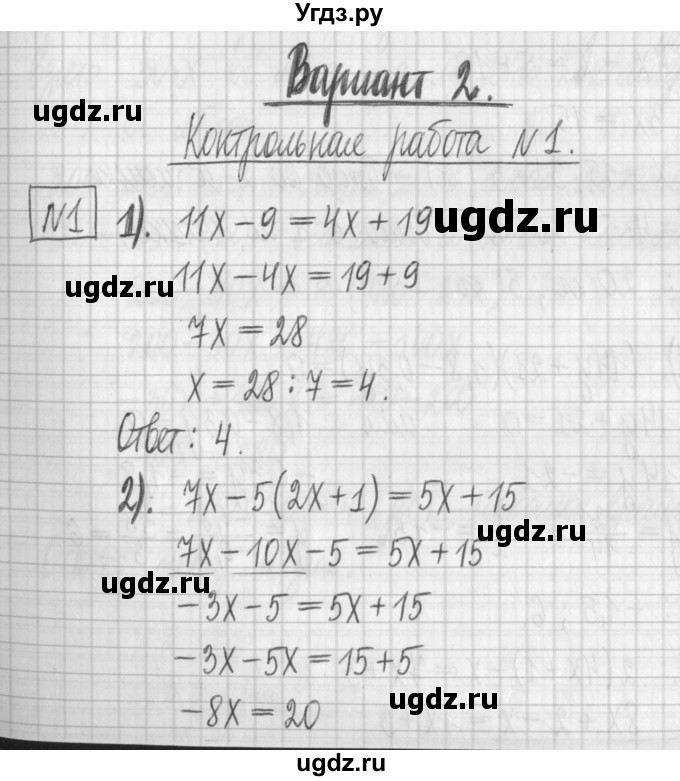 Угдз.ру
Вариант 2.
ugdz.ru
Контрольная работа №1.
№1 1). 11x - 9 = 4x + 19 ugdz.ru
11x - 4x = 19 + 9
ugdz.ru
7x = 28
x = 28 : 7 = 4.
Ответ: 4.
2). 7x - 5(2x + 1) = 5x + 15
ugdz.ru
7x - 10x - 5 = 5x + 15
ugdz.ru
-3x - 5 = 5x + 15
-3x - 5x = 15 + 5
ugdz.ru
-8x = 20
ugdz.ru